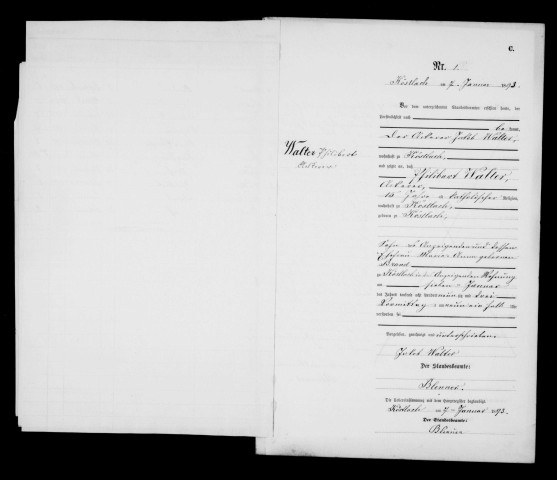 C.
Nr. 1.
Köstlach am 7. Januar 1893.
Vor dem unterzeichneten Standesbeamten erschien heute, der
Persönlichkeit nach
be kannt,
Der Ackerer Jakob Walter,
wohnhaft zu Köstlach,
und zeigte an, daß
Walter
Philibert Walter,
Ackerer,
15 Jahre alt, katholischer Religion,
wohnhaft zu Köstlach,
geboren zu Köstlach,
Sohn des Anzeigenden und dessen
Ehefrau Maria Anna geborenen
Brand
zu Köstlach in des Anzeigenden Wohnung
am sieben ten Januar
des Jahres tausend acht hundert neunzig und drei
Vormittags um neun ein halb Uhr
verstorben sei.
Vorgelesen, genehmigt und unterschrieben
Jakob Walter
Der Standesbeamte:
Die Uebereinstimmung mit dem Hauptregister beglaubigt
Köstlach am 7. Januar 1893.
Der Standesbeamte: